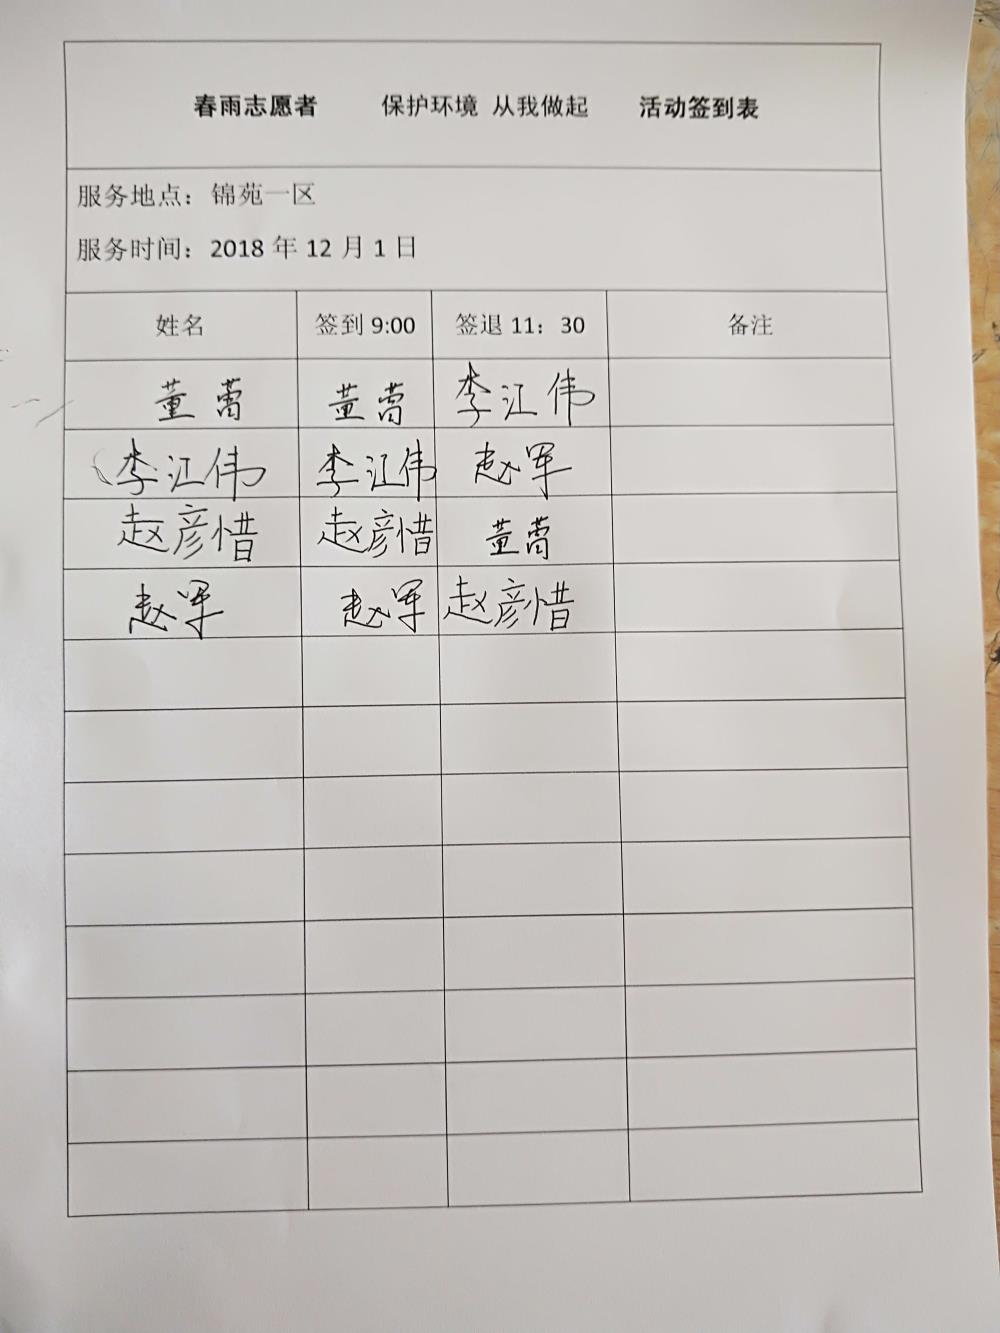 春雨志愿者 保护环境 从我做起 活动签到表
服务地点：锦苑一区
服务时间：2018 年 12 月 1 日
姓名 签到 9:00 签退 11：30 备注
董蕾 董蕾 李江伟
李江伟 李江伟 赵军
赵彦惜 赵彦惜 董蕾
赵军 赵军 赵彦惜